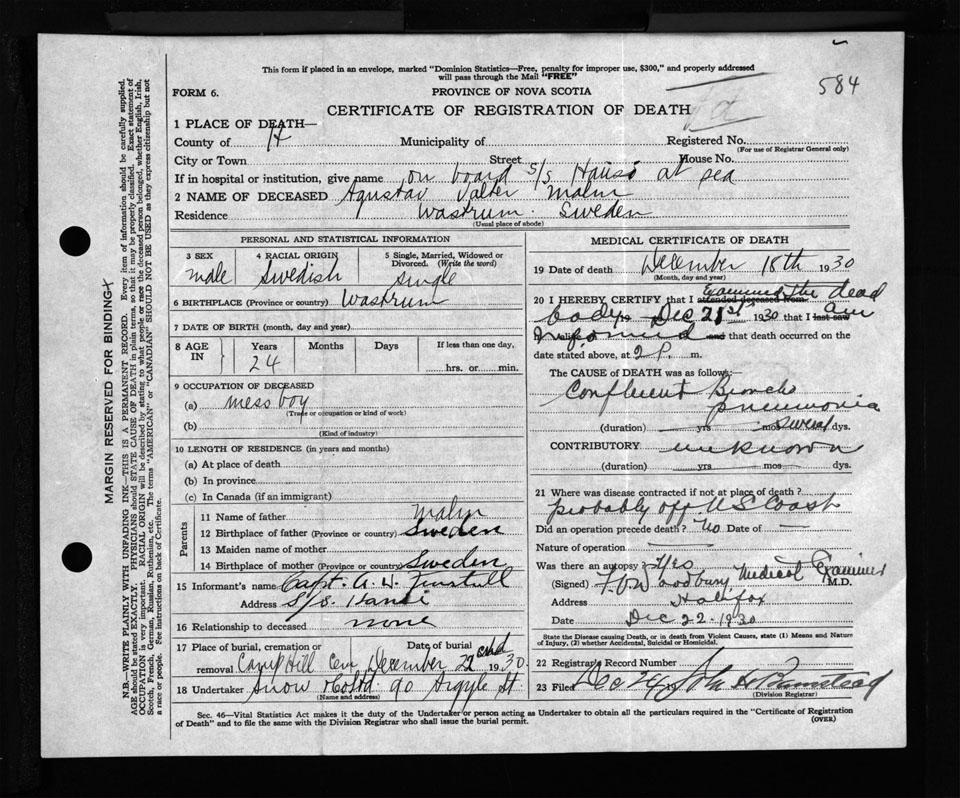 584
This form if placed in an envelope, marked "Dominion Statistics—Free, penalty for improper use, $300," and properly addressed
will pass through the Mail "FREE"
FORM 6.
PROVINCE OF NOVA SCOTIA
CERTIFICATE OF REGISTRATION OF DEATH
1 PLACE OF DEATH—
County of Hx Municipality of Registered No.
(For use of Registrar General only)
City or Town Street House No.
If in hospital or institution, give name on board S/S at sea
2 NAME OF DECEASED Agustav Valter Malm
Residence Wastrum. Sweden
(Usual place of abode)
PERSONAL AND STATISTICAL INFORMATION
3 SEX 4 RACIAL ORIGIN 5 Single, Married, Widowed or
Divorced. (Write the word)
male Swedish single
6 BIRTHPLACE (Province or country) Wastrum
7 DATE OF BIRTH (month, day and year)
8 AGE IN Years Months Days If less than one day,
24 hrs. or min.
9 OCCUPATION OF DECEASED
(a) mess boy
(Trade or occupation or kind of work)
(b)
(Kind of industry)
10 LENGTH OF RESIDENCE (in years and months)
(a) At place of death
(b) In province
(c) In Canada (if an immigrant)
Parents
11 Name of father Malm
12 Birthplace of father (Province or country) Sweden
13 Maiden name of mother
14 Birthplace of mother (Province or country) Sweden
15 Informant's name Capt. A. W.
Address S/S.
16 Relationship to deceased none
17 Place of burial, cremation or Date of burial
removal Camp Hill Cem December 22nd 1930
18 Undertaker Snow & Co Ltd 90 Argyle St
(Name and address)
MEDICAL CERTIFICATE OF DEATH
19 Date of death December 18th 1930
(Month, day and year)
20 I HEREBY CERTIFY that I attended deceased from Examined the dead
body Dec 21st 1930 that I last saw am
informed and that death occurred on the
date stated above, at 2 P. m.
The CAUSE of DEATH was as follows:
Confluent Broncho
pneumonia
(duration) yrs mos several dys.
CONTRIBUTORY unknown
(duration) yrs mos dys.
21 Where was disease contracted if not at place of death?
probably off U S Coast
Did an operation precede death? No Date of —
Nature of operation —
Was there an autopsy? Yes
(Signed) Woodbury Medical Examiner M.D.
Address Halifax
Date Dec 22. 1930
State the Disease causing Death, or in death from Violent Causes, state (1) Means and Nature
of Injury, (2) whether Accidental, Suicidal or Homicidal.
22 Registrar's Record Number
23 Filed Dec 24 John
(Division Registrar)
Sec. 46—Vital Statistics Act makes it the duty of the Undertaker or person acting as Undertaker to obtain all the particulars required in the "Certificate of Registration
of Death" and to file the same with the Division Registrar who shall issue the burial permit.
(OVER)
MARGIN RESERVED FOR BINDING
N.B.—WRITE PLAINLY WITH UNFADING INK—THIS IS A PERMANENT RECORD. Every item of information should be carefully supplied.
AGE should be stated EXACTLY. PHYSICIANS should STATE CAUSE OF DEATH in plain terms, so that it may be properly classified. Exact statement of
OCCUPATION is very important. RACIAL ORIGIN will be described by stating to what people or race the deceased person belonged, whether English, Irish,
Scotch, French, German, Russian, Ruthenian, etc. The terms "AMERICAN" or "CANADIAN" SHOULD NOT BE USED as they express citizenship but not
a race or people. See instructions on back of Certificate.